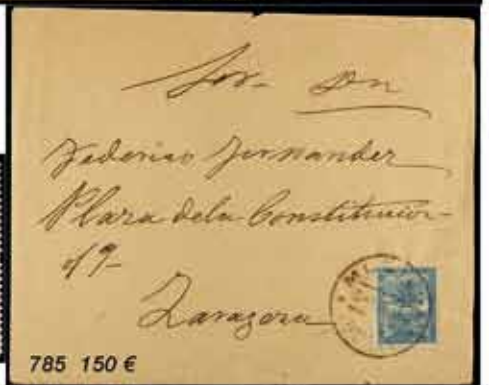 Sor. Dn
Federico Fernandez
Plaza dela Constitucion
Zaragoza
785 150 €